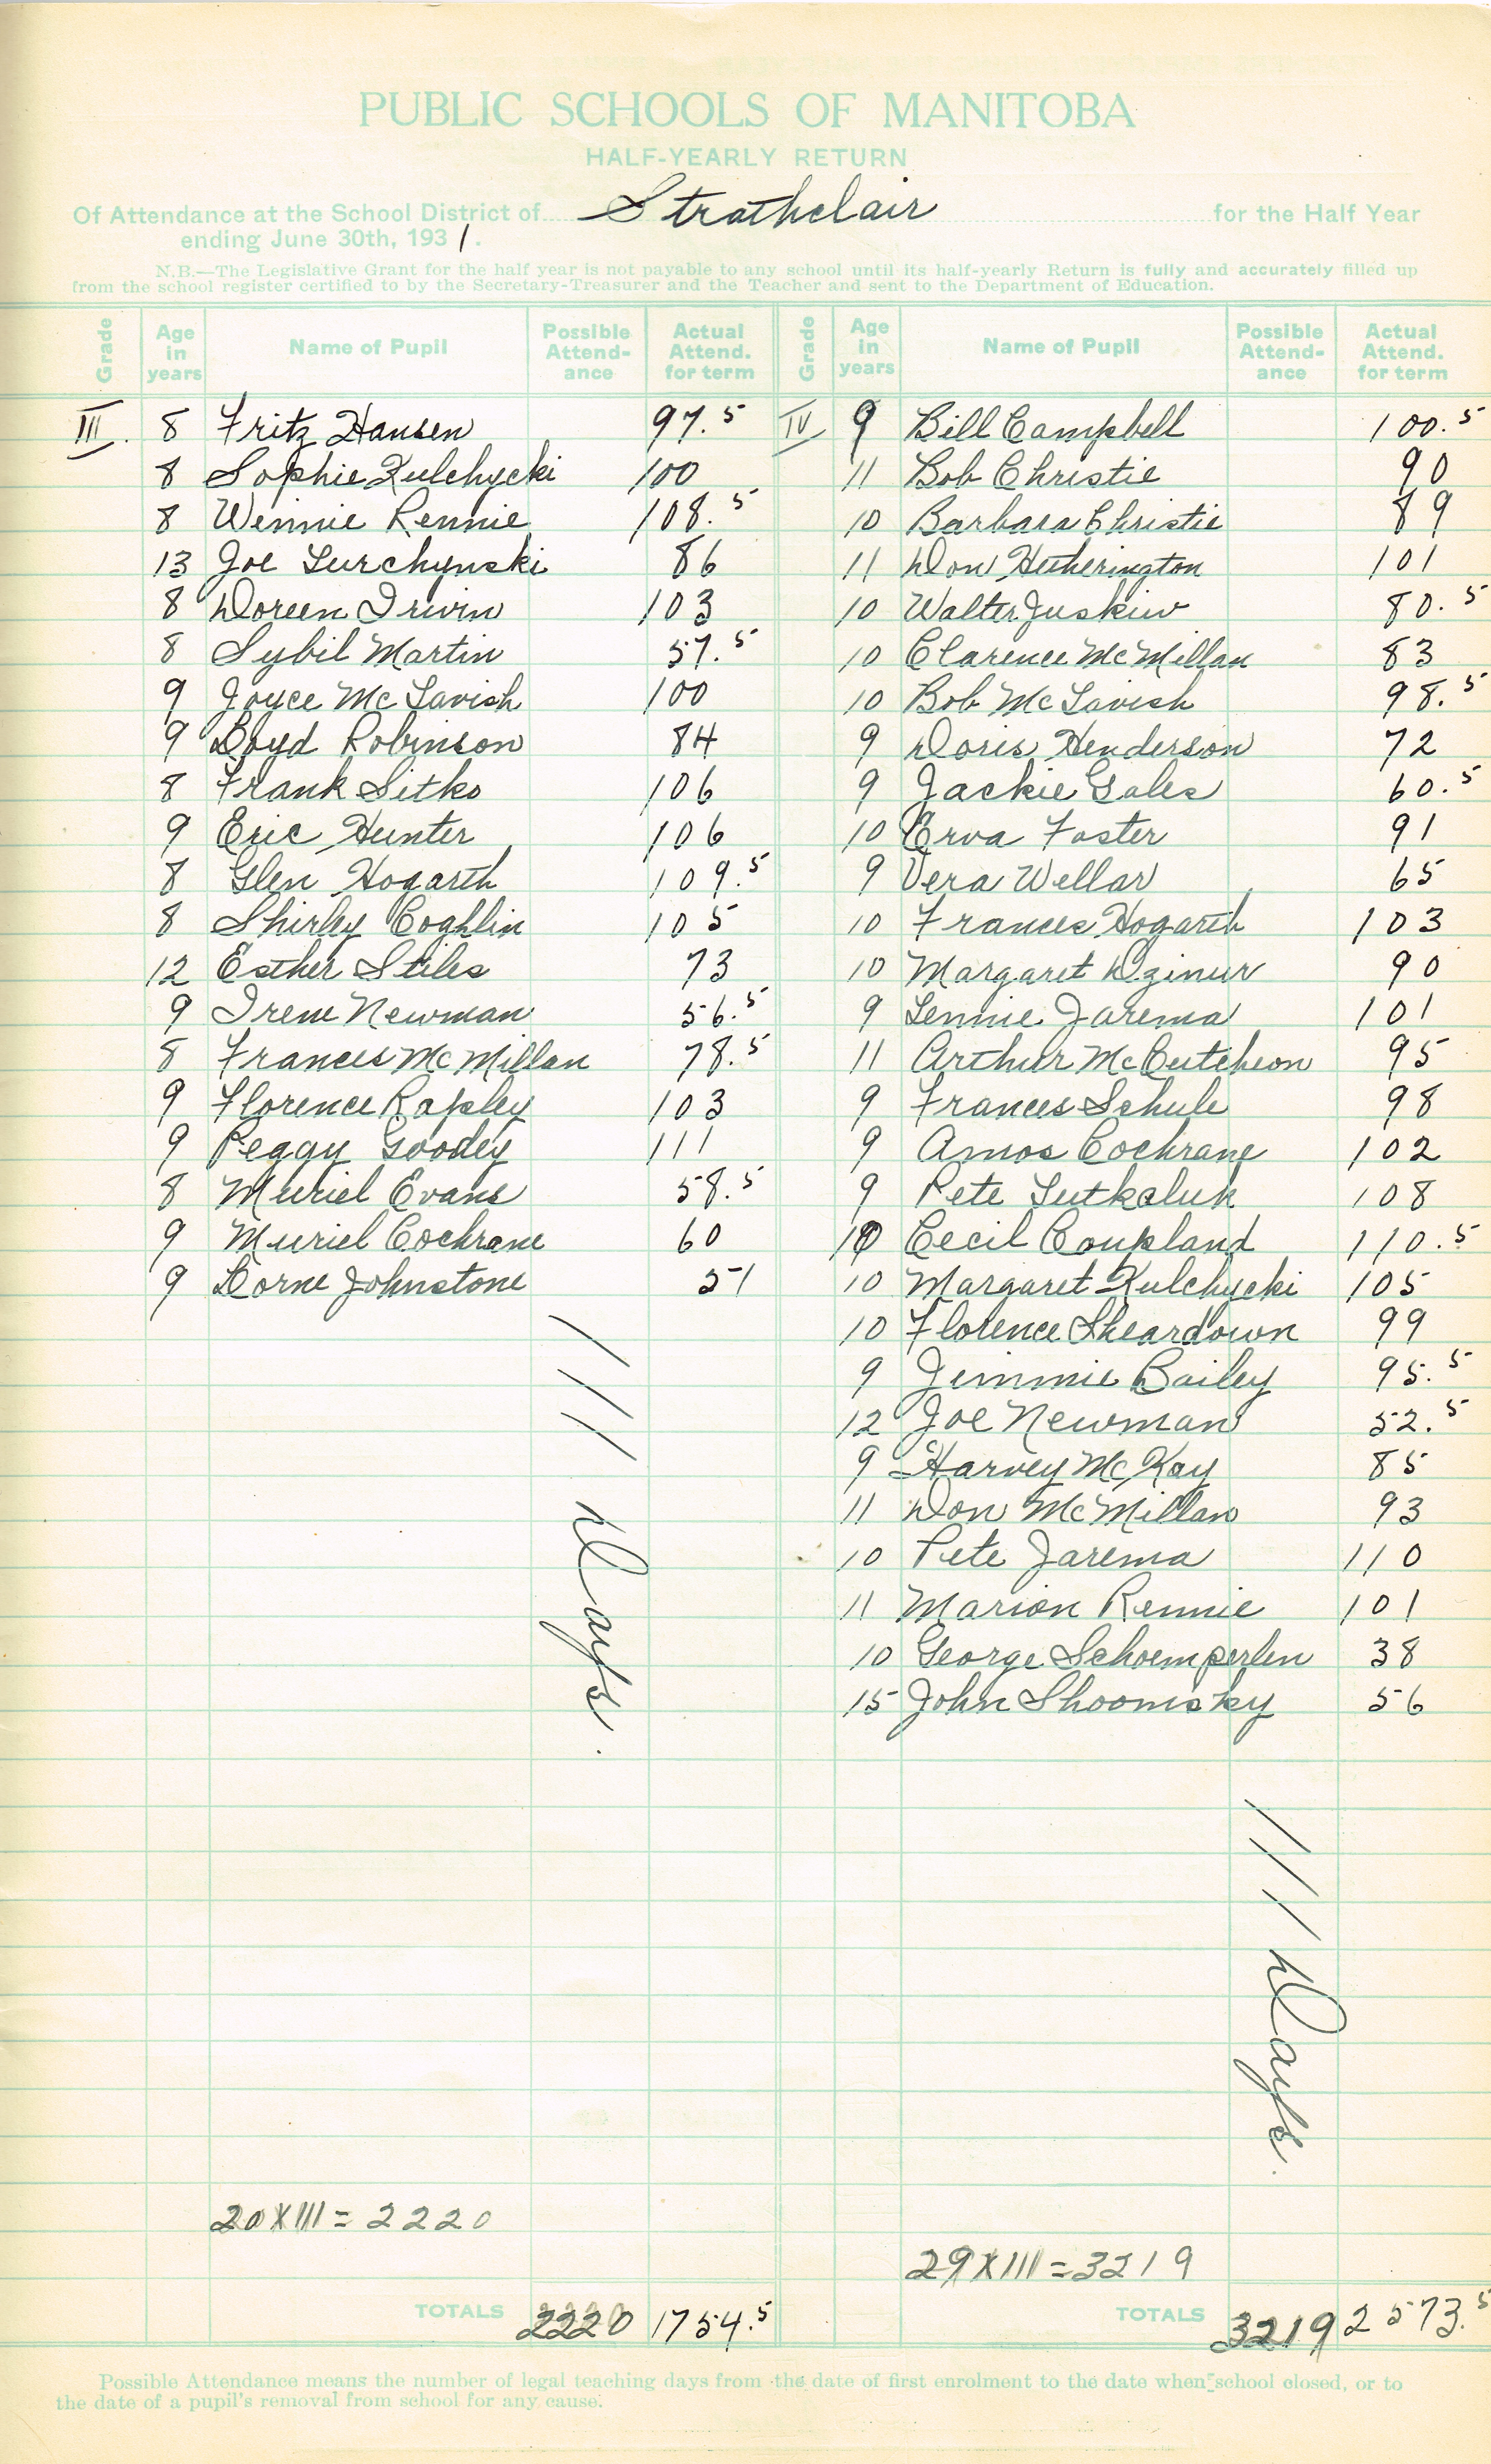 PUBLIC SCHOOLS OF MANITOBA
HALF-YEARLY RETURN
Of Attendance at the School District of Strathclair for the Half Year
ending June 30th, 1931.
N.B.—The Legislative Grant for the half year is not payable to any school until its half-yearly Return is fully and accurately filled up
from the school register certified to by the Secretary-Treasurer and the Teacher and sent to the Department of Education.
Grade Age in years Name of Pupil Possible Attend-ance Actual Attend. for term
III. 8 Fritz Hansen 97.5
8 Sophie Kulchycki 100
8 Winnie Rennie 108.5
13 Joe Turchynski 86
8 Doreen Irwin 103
8 Sybil Martin 57.5
9 Joyce McTavish 100
9 Boyd Robinson 84
8 Frank Sitko 106
9 Eric Hunter 106
8 Glen Hogarth 109.5
8 Shirley Coghlin 105
12 Esther Stiles 73
9 Irene Newman 56.5
8 Frances McMillan 78.5
9 Florence Rapley 103
9 Peggy Goodey 111
8 Muriel Evans 58.5
9 Muriel Cochrane 60
9 Lorne Johnstone 51
111 Days.
20 X 111 = 2220
TOTALS 2220 1754.5
Grade Age in years Name of Pupil Possible Attend-ance Actual Attend. for term
IV 9 Bill Campbell 100.5
11 Bob Christie 90
10 Barbara Christie 89
11 Don Hetherington 101
10 Walter Juskiw 80.5
10 Clarence McMillan 83
10 Bob McTavish 98.5
9 Doris Henderson 72
9 Jackie Gales 60.5
10 Erva Foster 91
9 Vera Wellar 65
10 Frances Hogarth 103
10 Margaret Dzinur 90
9 Lennie Jarema 101
11 Arthur McCutcheon 95
9 Frances Schule 98
9 Amos Cochrane 102
9 Pete Lutkaluk 108
10 Cecil Coupland 110.5
10 Margaret Kulchycki 105
10 Florence Sheardown 99
9 Jimmie Bailey 95.5
12 Joe Newman 52.5
9 Harvey McKay 85
11 Don McMillan 93
10 Pete Jarema 110
11 Marion Rennie 101
10 George Schoemperlen 38
15 John Shoomsky 56
111 Days.
29 X 111 = 3219
TOTALS 3219 2573.5
Possible Attendance means the number of legal teaching days from the date of first enrolment to the date when school closed, or to
the date of a pupil's removal from school for any cause.